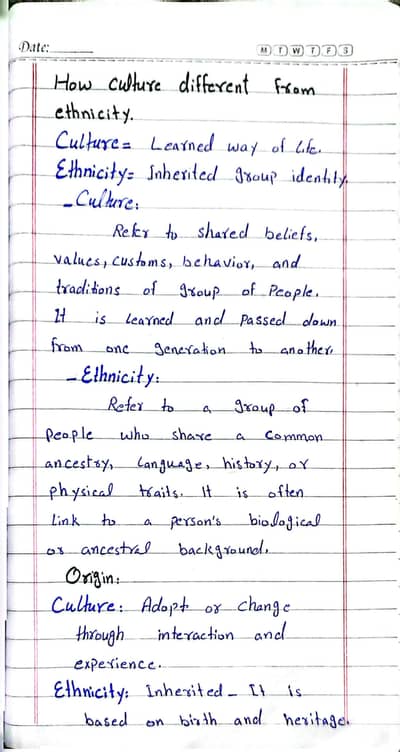 Date:
M T W T F S
How culture different from
ethnicity.
Culture = Learned way of life.
Ethnicity = Inherited group identity.
- Culture:
Refer to shared beliefs,
values, customs, behavior, and
traditions of group of People.
It is learned and passed down
from one generation to another.
- Ethnicity:
Refer to a group of
people who share a common
ancestry, language, history, or
physical traits. It is often
link to a person's biological
or ancestral background.
Origin:
Culture: Adopt or change
through interaction and
experience.
Ethnicity: Inherited - It is
based on birth and heritage.